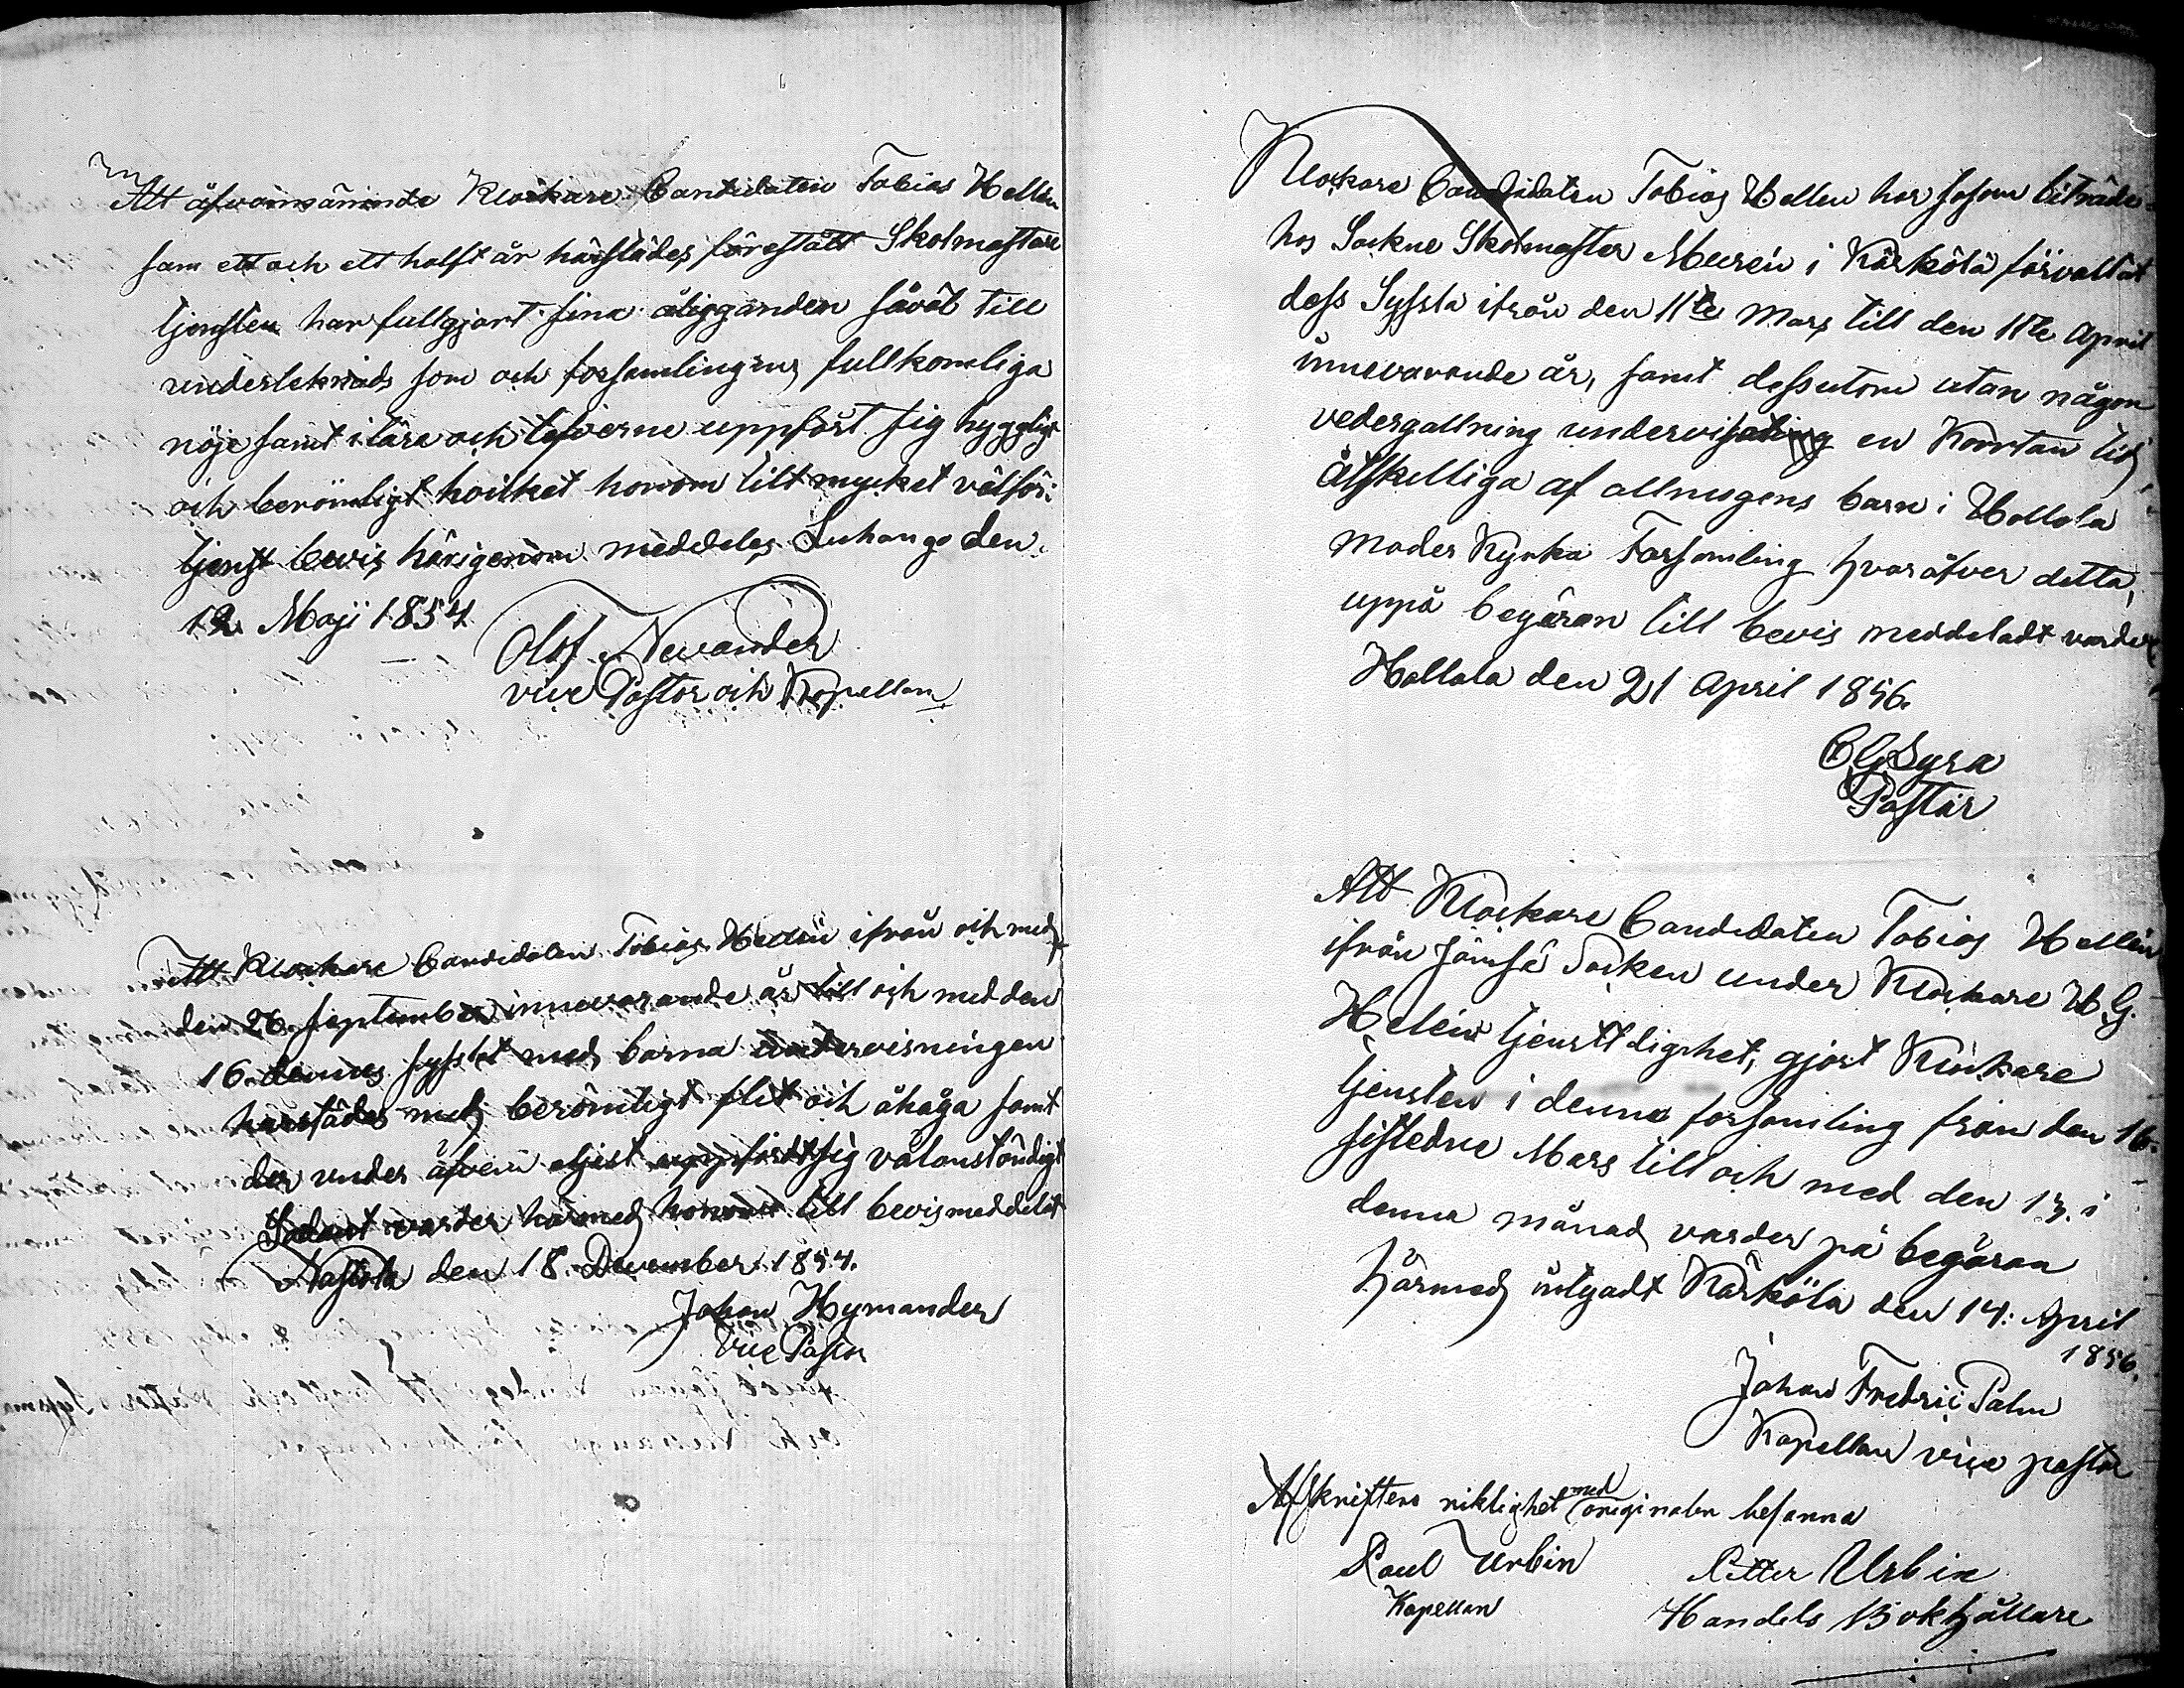 Att åfvannämnde Klockare Candidaten Tobias Hellen
som ett och ett halft år härstädes förestått Skolmästare
tjensten har fullgjort sina åligganden såväl till
underteknads som och forsamlingens fullkomliga
nöje samt i låra och lefverne uppfört sig hyggligt
och berömligt hvilket honom till mycket välför-
tjent bevis härigenom meddeles Luhango den
12 Maji 1854
Olof Nevander
vice Pastor och Kapellan
Att Klockare Candidaten Tobias Hellen ifrån och med
den 26. September innevarande år till och med den
16. dennes sysslat med barna undervisningen
härstädes med berömligt flit och åhåga samt
der under äfven eljest uppfördt sig välanständigt
Sådant varder härmed honom till bevis meddelat
Nastola den 18. December 1854.
Johan Hymander
Vice Pastor
Klockare Candidaten Tobias Hellen har såsom biträde
hos Sockne Skolmäster Meurén i Kärkölä förvaltat
dess Syssla ifrån den 11te Mars till den 11te April
innevarande år, samt dessutom utan någon
vedergallning undervisat en Korrtan tid
åtskilliga af allmogens barn i Hollola
Moder Kyrka Forsamling hvaröfver detta,
uppå begäran till bevis meddeladt varder
Hollola den 21 April 1856.
C G Syra
Pastor
Att Klockare Candidaten Tobias Hellén
ifrån Jämsä Socken under Klockare H. G.
Heléns tjensttlighet, gjort Klockare
tjensten i denna forsamling från den 16.
sistledne Mars till och med den 13. i
denna månad varder på begäran
härmed intygadt Kärkölä den 14: April
1856.
Johan Fredric Palm
Kapellan vice pastor
Afskriftens riktighet med originalen besanna
Paul Urbin Petter Urbin
Kapellan Handels Bokhållare